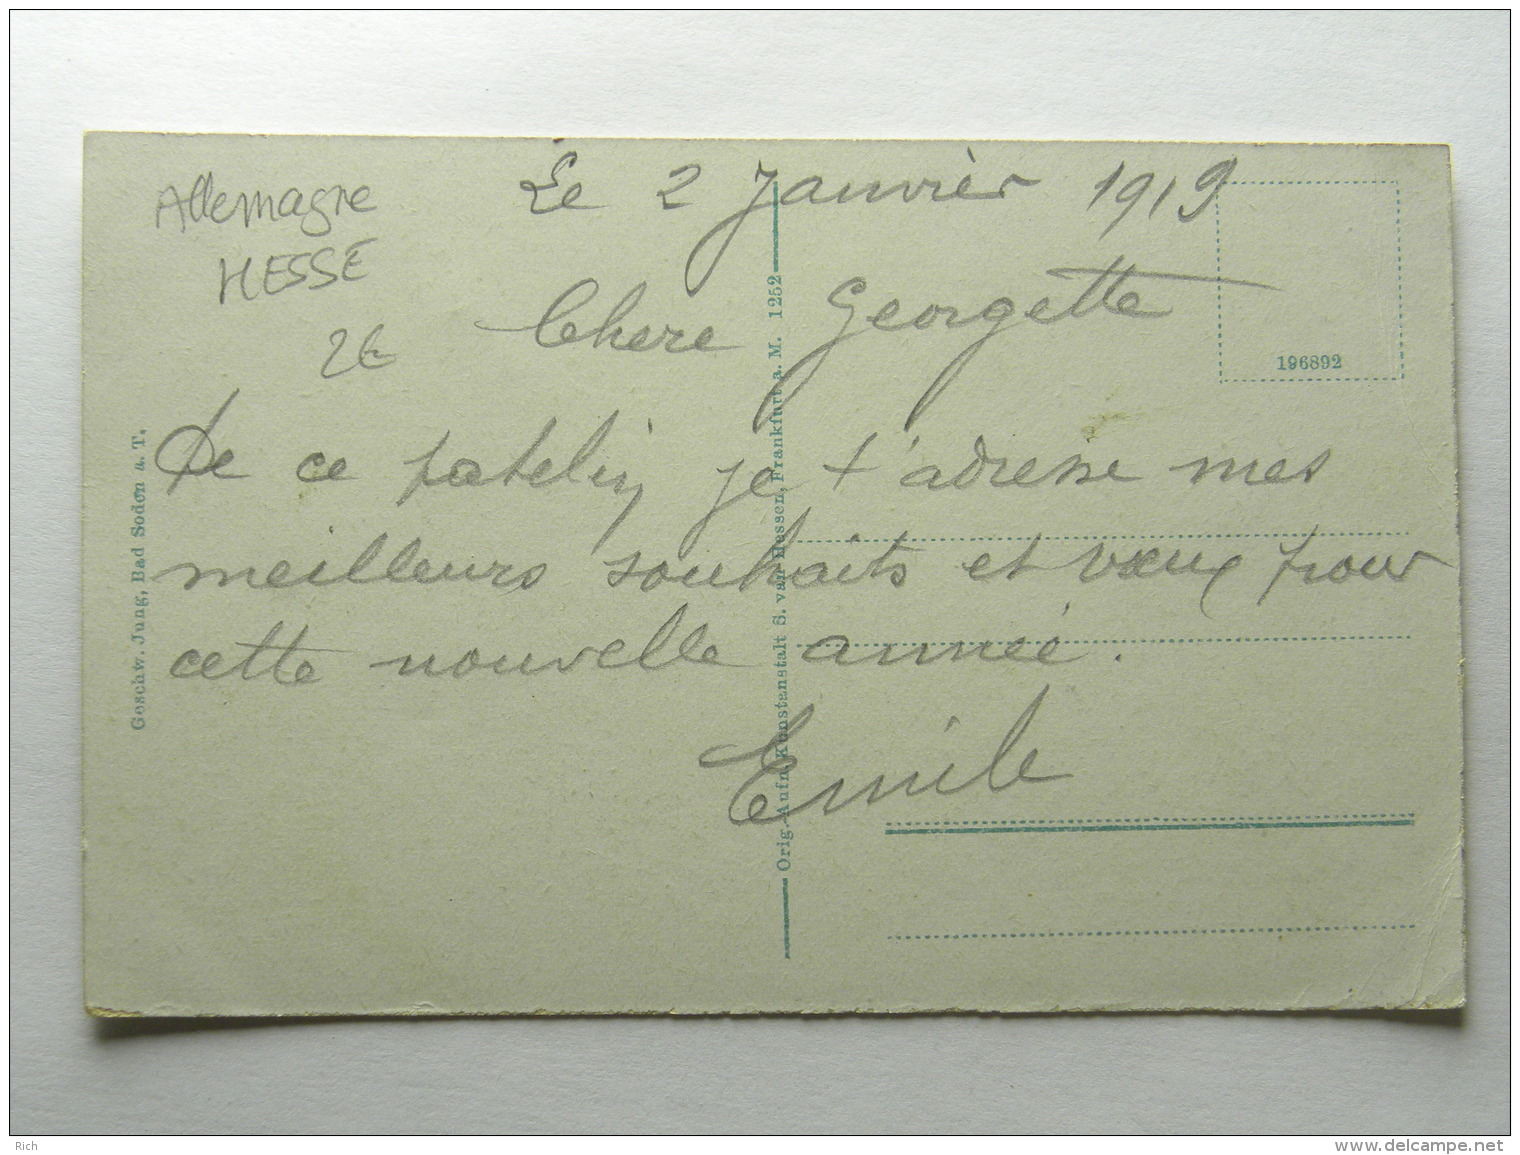 Allemagne
HESSE
2€
Le 2 Janvièr 1919
Chere Georgette
De ce patelin je t'adresse mes
meilleurs souhaits et vœux pour
cette nouvelle année.
Emile
196892
Geschw. Jung, Bad Soden a. T.
Orig.-Aufn. Kunstanstalt S. van Hessen, Frankfurt a. M. 1252
Rich
www.delcampe.net